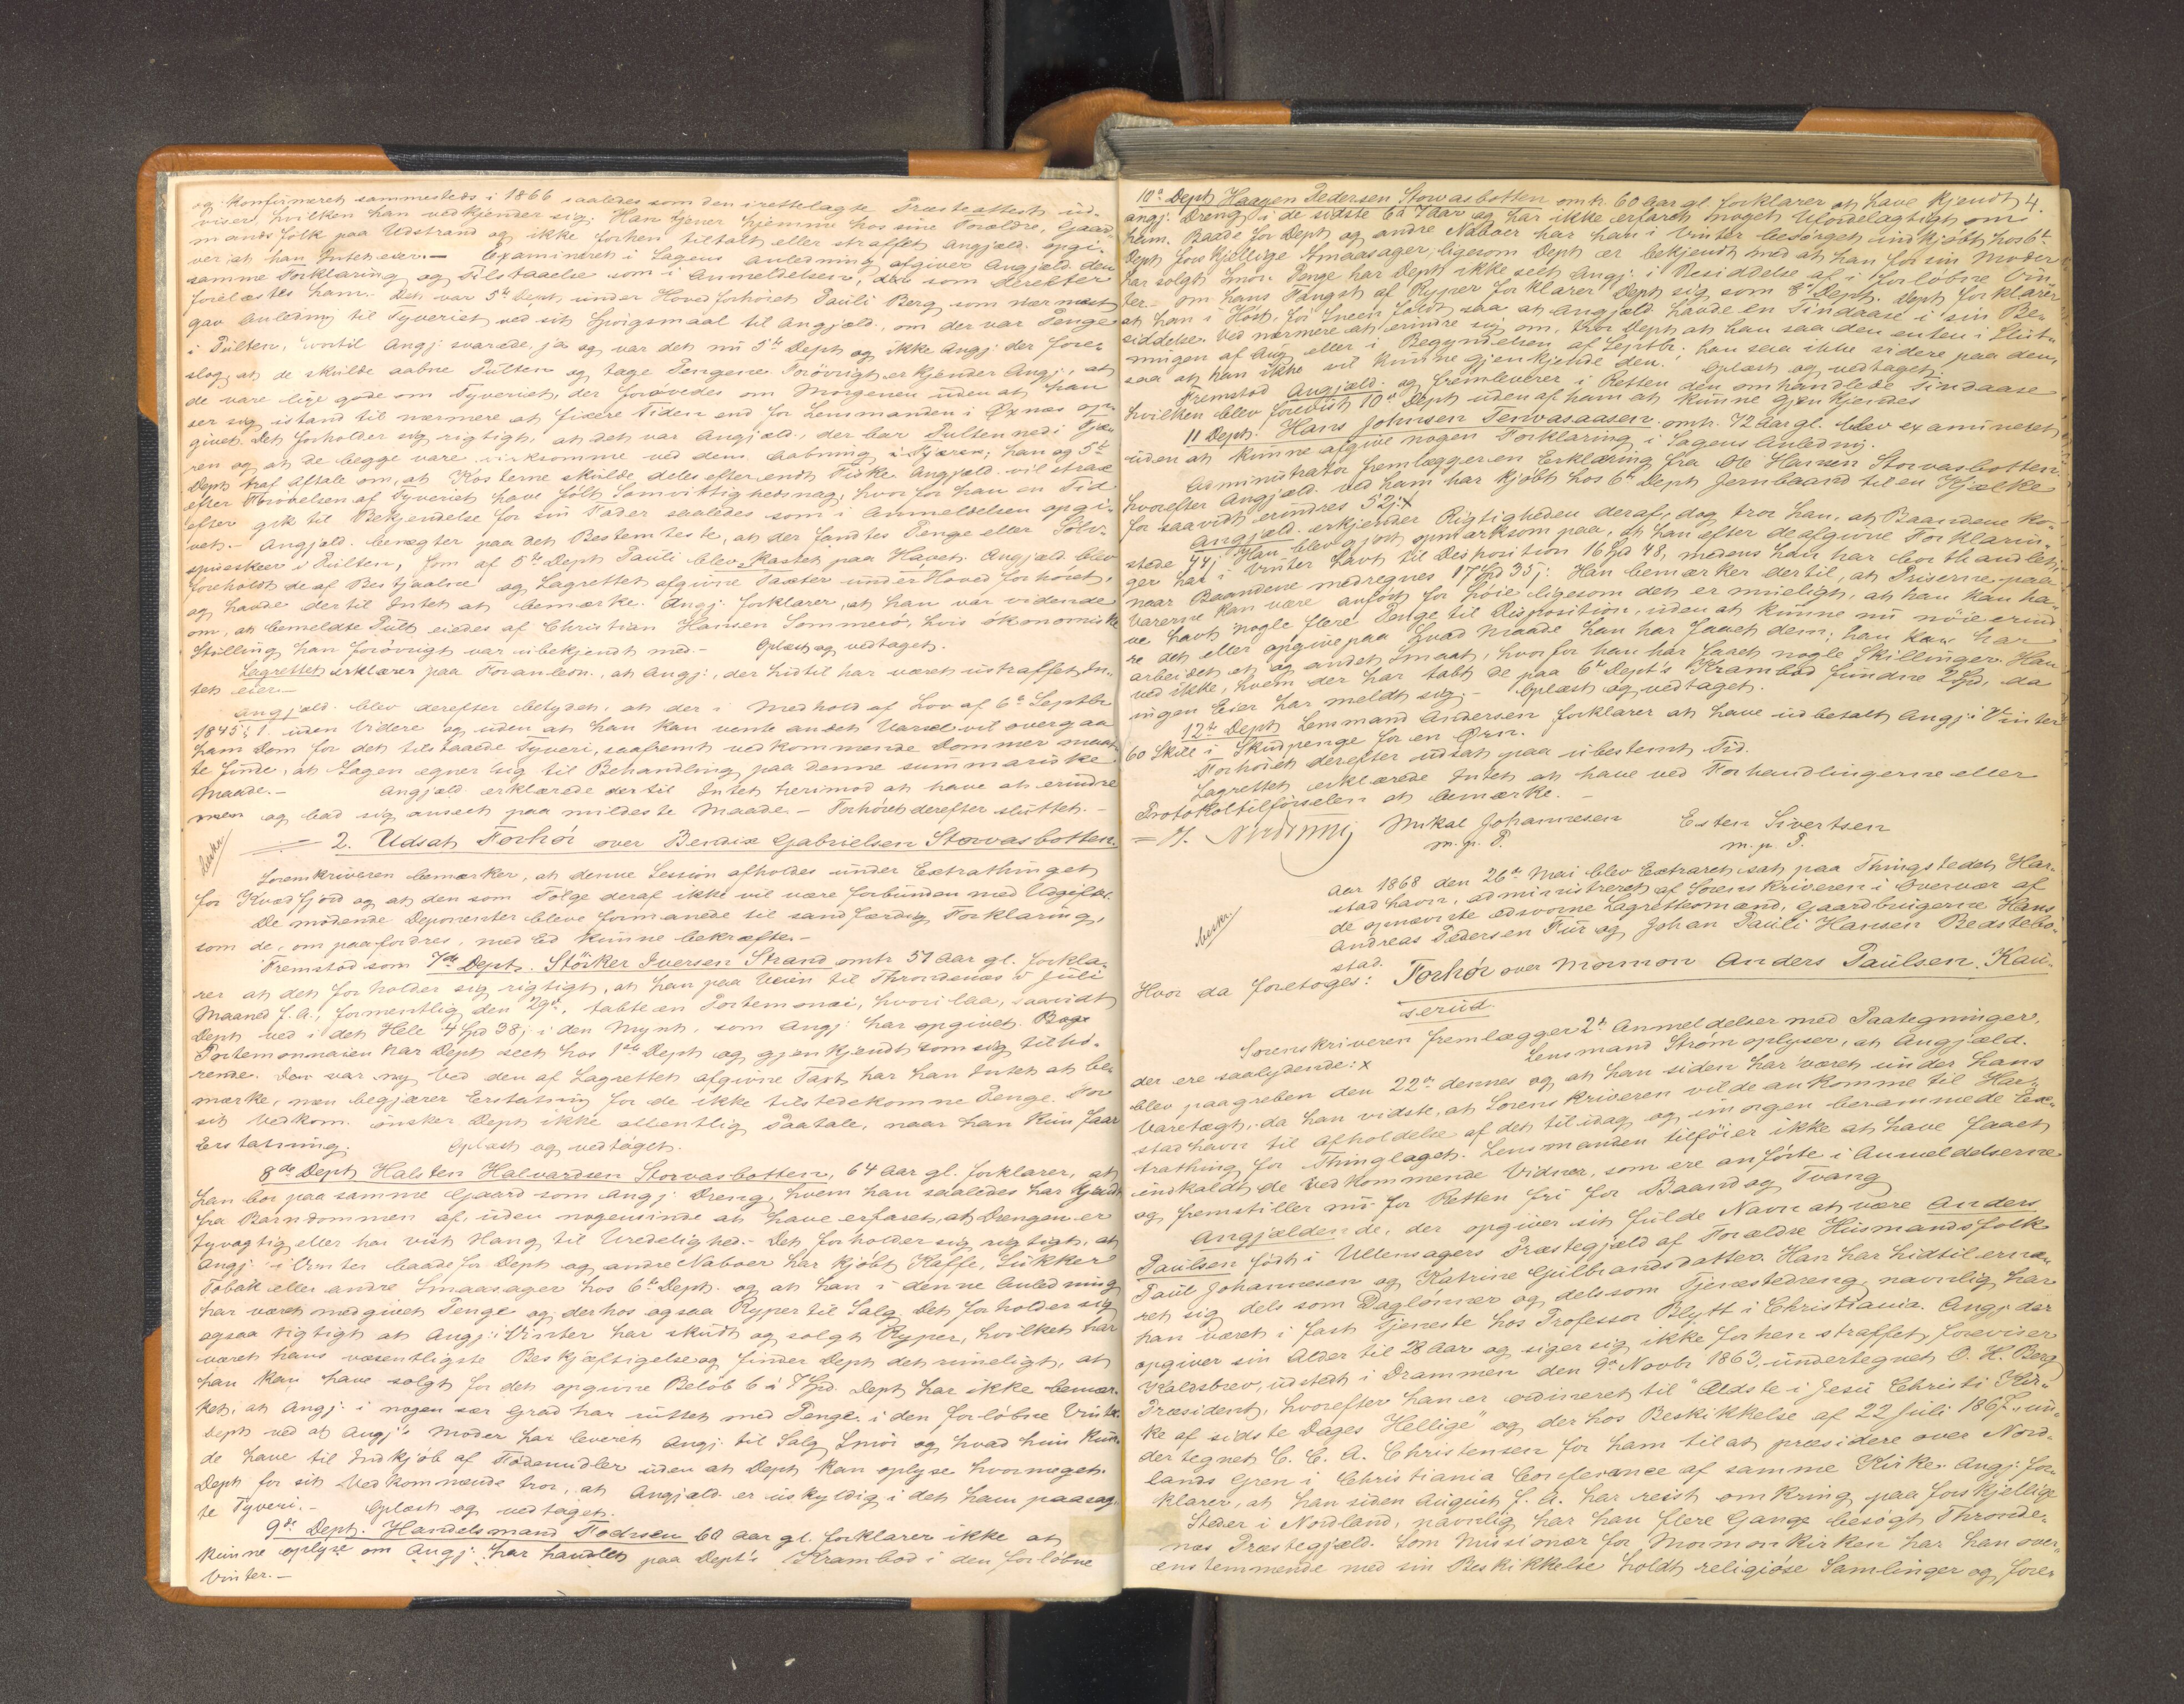 og konfirmeret sammesteds i 1866 saaledes som den irettelagte Præsteattest ud-
viser, hvilken han vedkjender sig. Han tjener hjemme hos sine Forældre, Gaard-
mandsfolk paa Udstrand og ikke forhen tiltalt eller straffet. Angjæld. opgi-
ver at han Intet eier.— Examineret i Sagens Anledning afgiver Angjæld. den
samme Forklaring og Tilstaaelse som i Anmeldelsen, der som derefter
forelæstes ham. Det var 5te Dept. under Hovedforhöret Pauli Berg som nærmest
gav Anledning til Tyveriet ved sit Spörgsmaal til Angjæld., om der var Penge
i Pulten, hvortil Angj. svarede, ja og var det nu 5te Dept og ikke Angj. der fore-
slog, at de skulde aabne Pulten og tage Pengene. Forövrigt erkjender Angj., at
de vare lige gode om Tyveriet, der forövedes om Morgenen uden at han
ser sig istand til nærmere at fixere Tiden end for Lensmanden i Öxnæs op-
givet. Det forholder sig rigtigt, at det var Angjæld., der bar Pulten ned i Fjæ-
ren og at de begge vare virksomme ved dens Aabning i Fjæren; han og 5te
Dept traf Aftale om, at Kosterne skulde deles efter endt Fiske. Angjæld. vil strax
efter Forövelsen af Tyveriet have fölt Samvittighedsnag, hvorfor han en Tid
efter gik til Bekjendelse for sin Fader saaledes som i Anmeldelsen opgi-
vet.— Angjæld. benægter paa det Bestemteste, at der fandtes Penge eller Sölv-
spiseskeer i Pulten, som af 5te Dept Pauli blev kastet paa Havet. Angjæld. blev
foreholdt de af Bestjaalne og Lagrettet afgivne Taxter under Hovedforhöret,
og havde dertil Intet at bemærke. Angj. forklarer, at han var vidende
om, at bemeldte Pult eiedes af Christian Hansen Sommerö, hvis ökonomiske
Stilling han forövrigt var ubekjendt med.— Oplæst og vedtaget.
Lagrettet erklærer paa Foranledn., at Angj., der hidtil har været ustraffet In-
tet eier.—
Angjæld. blev derefter betydet, at der i Medhold af Lov af 6te Septbr
1845 § 1. uden Videre og uden at han kan vente andet Varsel vil overgaa
ham Dom for det tilstaaede Tyveri, saafremt vedkommende Dommer maat-
te finde, at Sagen egner sig til Behandling paa denne summariske
Maade.— Angjæld erklærede dertil Intet herimod at have at erindre
men og bad sig anseet paa mildeste Maade.— Forhöret derefter sluttet.—
beskr.
2. Udsat Forhör over Bendix Gabrielsen Storvasbotten.
Sorenskriveren bemærker, at denne Session afholdes under Extrathinget
for Kvædfjord og at den som Fölge deraf ikke vil være forbunden med Udgifter.
De mödende Deponenter bleve formanede til sandfærdig Forklaring,
som de, om paafordres, med Ed kunne bekræfte.—
Fremstod som 7de Dept. Störker Iversen Strand omtr 57 Aar gl. forkla-
rer at det forholder sig rigtigt, at han paa Veien til Throndenæs i Juli
Maaned f.A., formentlig den 29de, tabte en Portemonnai, hvori laa, saavidt
Dept ved i det Hele 4 Spd 38 s i den Mynt, som Angj. har opgivet.
Portemonnaien har Dept seet hos 1ste Dept og gjenkjendt som sig tilhö-
rende. Den var ny. Ved den af Lagrettet afgivne Taxt har han Intet at be-
mærke, men begjærer Erstatning for de ikke tilstedekomne Penge. For
sit Vedkom. önsker Dept ikke offentlig Paatale, naar han kun faar
Erstatning. Oplæst og vedtaget.
8de Dept Halsten Halvardsen Storvasbotten, 64 Aar gl. forklarer, at
han bor paa samme Gaard som Angj. Dreng, hvem han saaledes har kjendt
fra Barndommen af, uden nogensinde at have erfaret, at Drengen er
tyvagtig eller har vist Hang til Uredelighed.— Det forholder sig rigtigt, at
Angj. i Vinter baade for Dept og andre Naboer har kjöbt Kaffe, Sukker
Tobak eller andre Smaasager hos 6te Dept. og at han i denne Anledning
har været medgivet Penge og derhos ogsaa Ryper til Salg. Det forholder sig
ogsaa rigtigt at Angj. i Vinter har skudt og solgt Ryper, hvilket har
været hans væsentligste Beskjæftigelse og finder Dept det rimeligt, at
han kan have solgt for det opgivne Belöb 6 à 7 Spd. Dept har ikke bemær-
ket, at Angj. i nogen sær Grad har ruttet med Penge i den forlöbne Vinter.
Dept ved at Angj's Moder har leveret Angj. til Salg Smör og hvad hun kun-
de have til Indkjöb af Födemidler uden at Dept kan oplyse hvormeget.
Dept for sit Vedkommende tror, at Angjæld. er uskyldig i det ham paasag-
te Tyveri.— Oplæst og vedtaget.
9de Dept. Handelsmand Fodnsen 60 Aar gl. forklarer ikke at
kunne oplyse om Angj. har handlet paa Dept's Krambod i den forlöbne
Vinter.—
4.
10de Dept Haagen Pedersen Storvasbotten omtr. 60 Aar gl. forklarer at have kjendt
angj. Dreng i de sidste 6 à 7 Aar og har ikke erfaret noget Ufordelagtigt om
ham. Baade for Dept og andre Naboer har han i Vinter besörget indkjöbt hos 6te
Dept forskjellige Smaasager, ligesom Dept er bekjendt med at han for sin Moder
har solgt Smör. Penge har Dept ikke seet Angj. i Besiddelse af i forlöbne Vin-
ter.— Om hans Fangst af Ryper forklarer Dept sig som 8de Dept. Dept forklarer
at han i Höst, för Sneen faldt saa, at Angjæld. havde en Tindaase i sin Be-
siddelse. Ved nærmere at erindre sig om, tror Dept at han saa den enten i Slut-
ningen af Aug. eller i Begyndelsen af Septbr.; han saa ikke videre paa den,
saa at han ikke vil kunne gjenkjende den. Oplæst og vedtaget.
Fremstod Angjæld. og fremleverer i Retten den omhandlede Tindaase
hvilken blev forevist 10de Dept uden af ham at kunne gjenkjendes
11 Dept. Hans Johnsen Tervasaasen omtr. 72 Aar gl. blev examineret
uden at kunne afgive nogen Forklaring i Sagens Anledning.
Administrator fremlægger en Erklæring fra Ole Hansen Storvasbotten
hvorefter Angjæld. ved ham har kjöbt hos 6te Dept Jernbaand til en Kjælke
for saavidt erindres 52 s: x
Angjæld. erkjender Rigtigheden deraf, dog tror han, at Baandene ko-
stede 48 s. Han blev gjort opmærksom paa, at han efter de afgivne Forklarin-
ger har i Vinter havt til Disposition 16 Spd 48, medens han har borthandlet
naar Baandene medregnes 17 Spd 35 s: Han bemærker dertil, at Priserne paa
Varerne kan være anfört for höie ligesom det er mueligt, at han kan ha-
ve havt nogle flere Penge til Disposition, uden at kunne nu nöie erind-
re det eller opgive paa hvad Maade han har faaet dem; han kan har
arbeidet et og andet Smaat, hvorfor han har faaet nogle Skillinger. Han
ved ikke, hvem der har tabt de paa 6te Dept's Krambod fundne 2 Spd, da
ingen Eier har meldt sig.— Oplæst og vedtaget.
12te Dept Lensmand Andersen forklarer at have udbetalt Angj. i Vinter
60 Skill i Skudpenge for en Örn.
Forhöret derefter udsat paa ubestemt Tid.
Lagrettet erklærede Intet at have ved Forhandlingerne eller
Protokoltilförselen at bemærke.—
Mikal Johannesen Esten Sivertsen
m. p. P. m. p. P.
beskr.
Aar 1868 den 26de Mai blev Extraret sat paa Thingstedet Har-
stad havn, administreret af Sorenskriveren i Overvær af
de opnævnte edsvorne Lagrettesmænd, Gaardbrugerne Hans
Andreas Pedersen Fur og Johan Pauli Hansen Bedstebo-
stad.
Hvor da foretoges: Forhör over Mormon Anders Paulsen Kau-
serud.
Sorenskriveren fremlægger 2de Anmeldelser med Paategninger,
der ere saalydende: x Lensmand Ström oplyser, at Angjæld.
blev paagreben den 22de dennes og at han siden har været under hans
Varetægt, da han vidste, at Sorenskriveren vilde ankomme til Har-
stad havn til Afholdelse af det til idag og imorgen berammede Ex-
trathing for Thinglaget. Lensmanden tilföier ikke at have faaet
indkaldt de vedkommende Vidner, som ere anförte i Anmeldelserne
og fremstiller nu for Retten fri for Baand og Tvang
Angjældende, der opgiver sit fulde Navn at være Anders
Paulsen födt i Ullensagers Præstegjæld af Forældre Husmandsfolk
Paul Johannesen og Katrine Gulbrandsdatter. Han har hidtil ernæ-
ret sig dels som Daglönner og dels som Tjenestedreng, navnlig har
han været i fast Tjeneste hos Professor Blytt i Christiania. Angj. der
opgiver sin Alder til 28 Aar og siger sig ikke forhen straffet, foreviser
Kaldsbrev, udstedt i Drammen den 9de Novbr 1863, undertegnet O. H. Berg
Præsident, hvorefter han er ordineret til "Ældste i Jesu Christi Kir-
ke af sidste Dages Hellige" og derhos Beskikkelse af 22 Juli 1867, un-
dertegnet C. C. A. Christensen for ham til at præsidere over Nord-
lands Gren i Christiania Conference af samme Kirke. Angj. for-
klarer, at han siden August f. A. har reist omkring paa forskjellige
Steder i Nordland, navnlig har han flere Gange besögt Thronde-
næs Præstegjæld. Som Missionær for Mormonkirken har han over-
ensstemmende med sin Beskikkelse holdt religiöse Samlinger og fore-